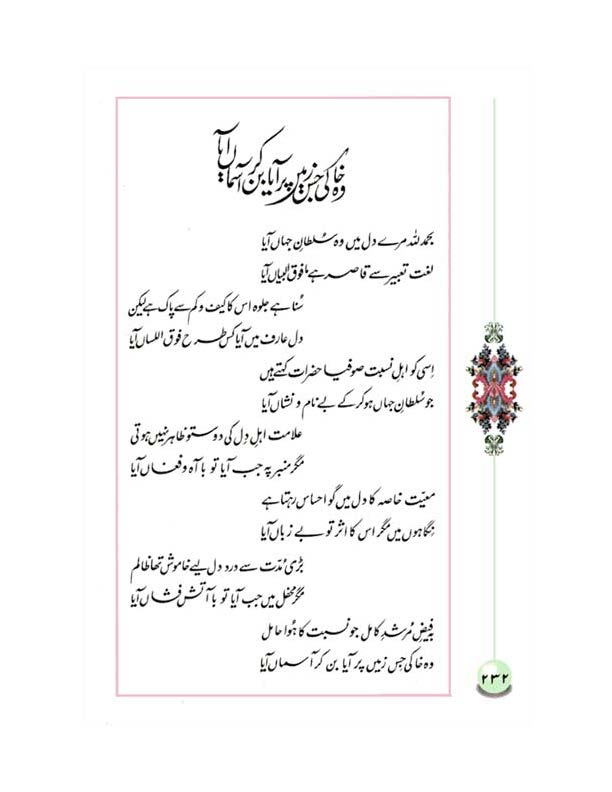 وہ خاکی جس زمیں پر آیا بن کر آسماں آیا
بحمدللہ مرے دل میں وہ سُلطانِ جہاں آیا
لغت تعبیر سے قاصر ہے مافوق البیاں آیا
سُنا ہے جلوہ اس کا کیف و کم سے پاک ہے لیکن
دل عارف میں آیا کس طرح فوق اللساں آیا
اِسی کو اہلِ نسبت صوفیا حضرات کہتے ہیں
جو سُلطانِ جہاں ہو کر کے بے نام و نشاں آیا
علامت اہلِ دِل کی دوستو ظاہر نہیں ہوتی
مگر منبر پہ جب آیا تو با آہ و فغاں آیا
معیّت خاصہ کا دل میں گو احساس رہتا ہے
نِگاہوں میں مگر اس کا اثر تو بے زباں آیا
بڑی مُدّت سے دردِ دل لیے خاموش تھا ظالم
مگر محفل میں جب آیا تو با آتش فشاں آیا
بفیضِ مُرشدِ کامل جو نسبت کا ہُوا حامل
وہ خاکی جس زمیں پر آیا بن کر آسماں آیا
۲۳۲